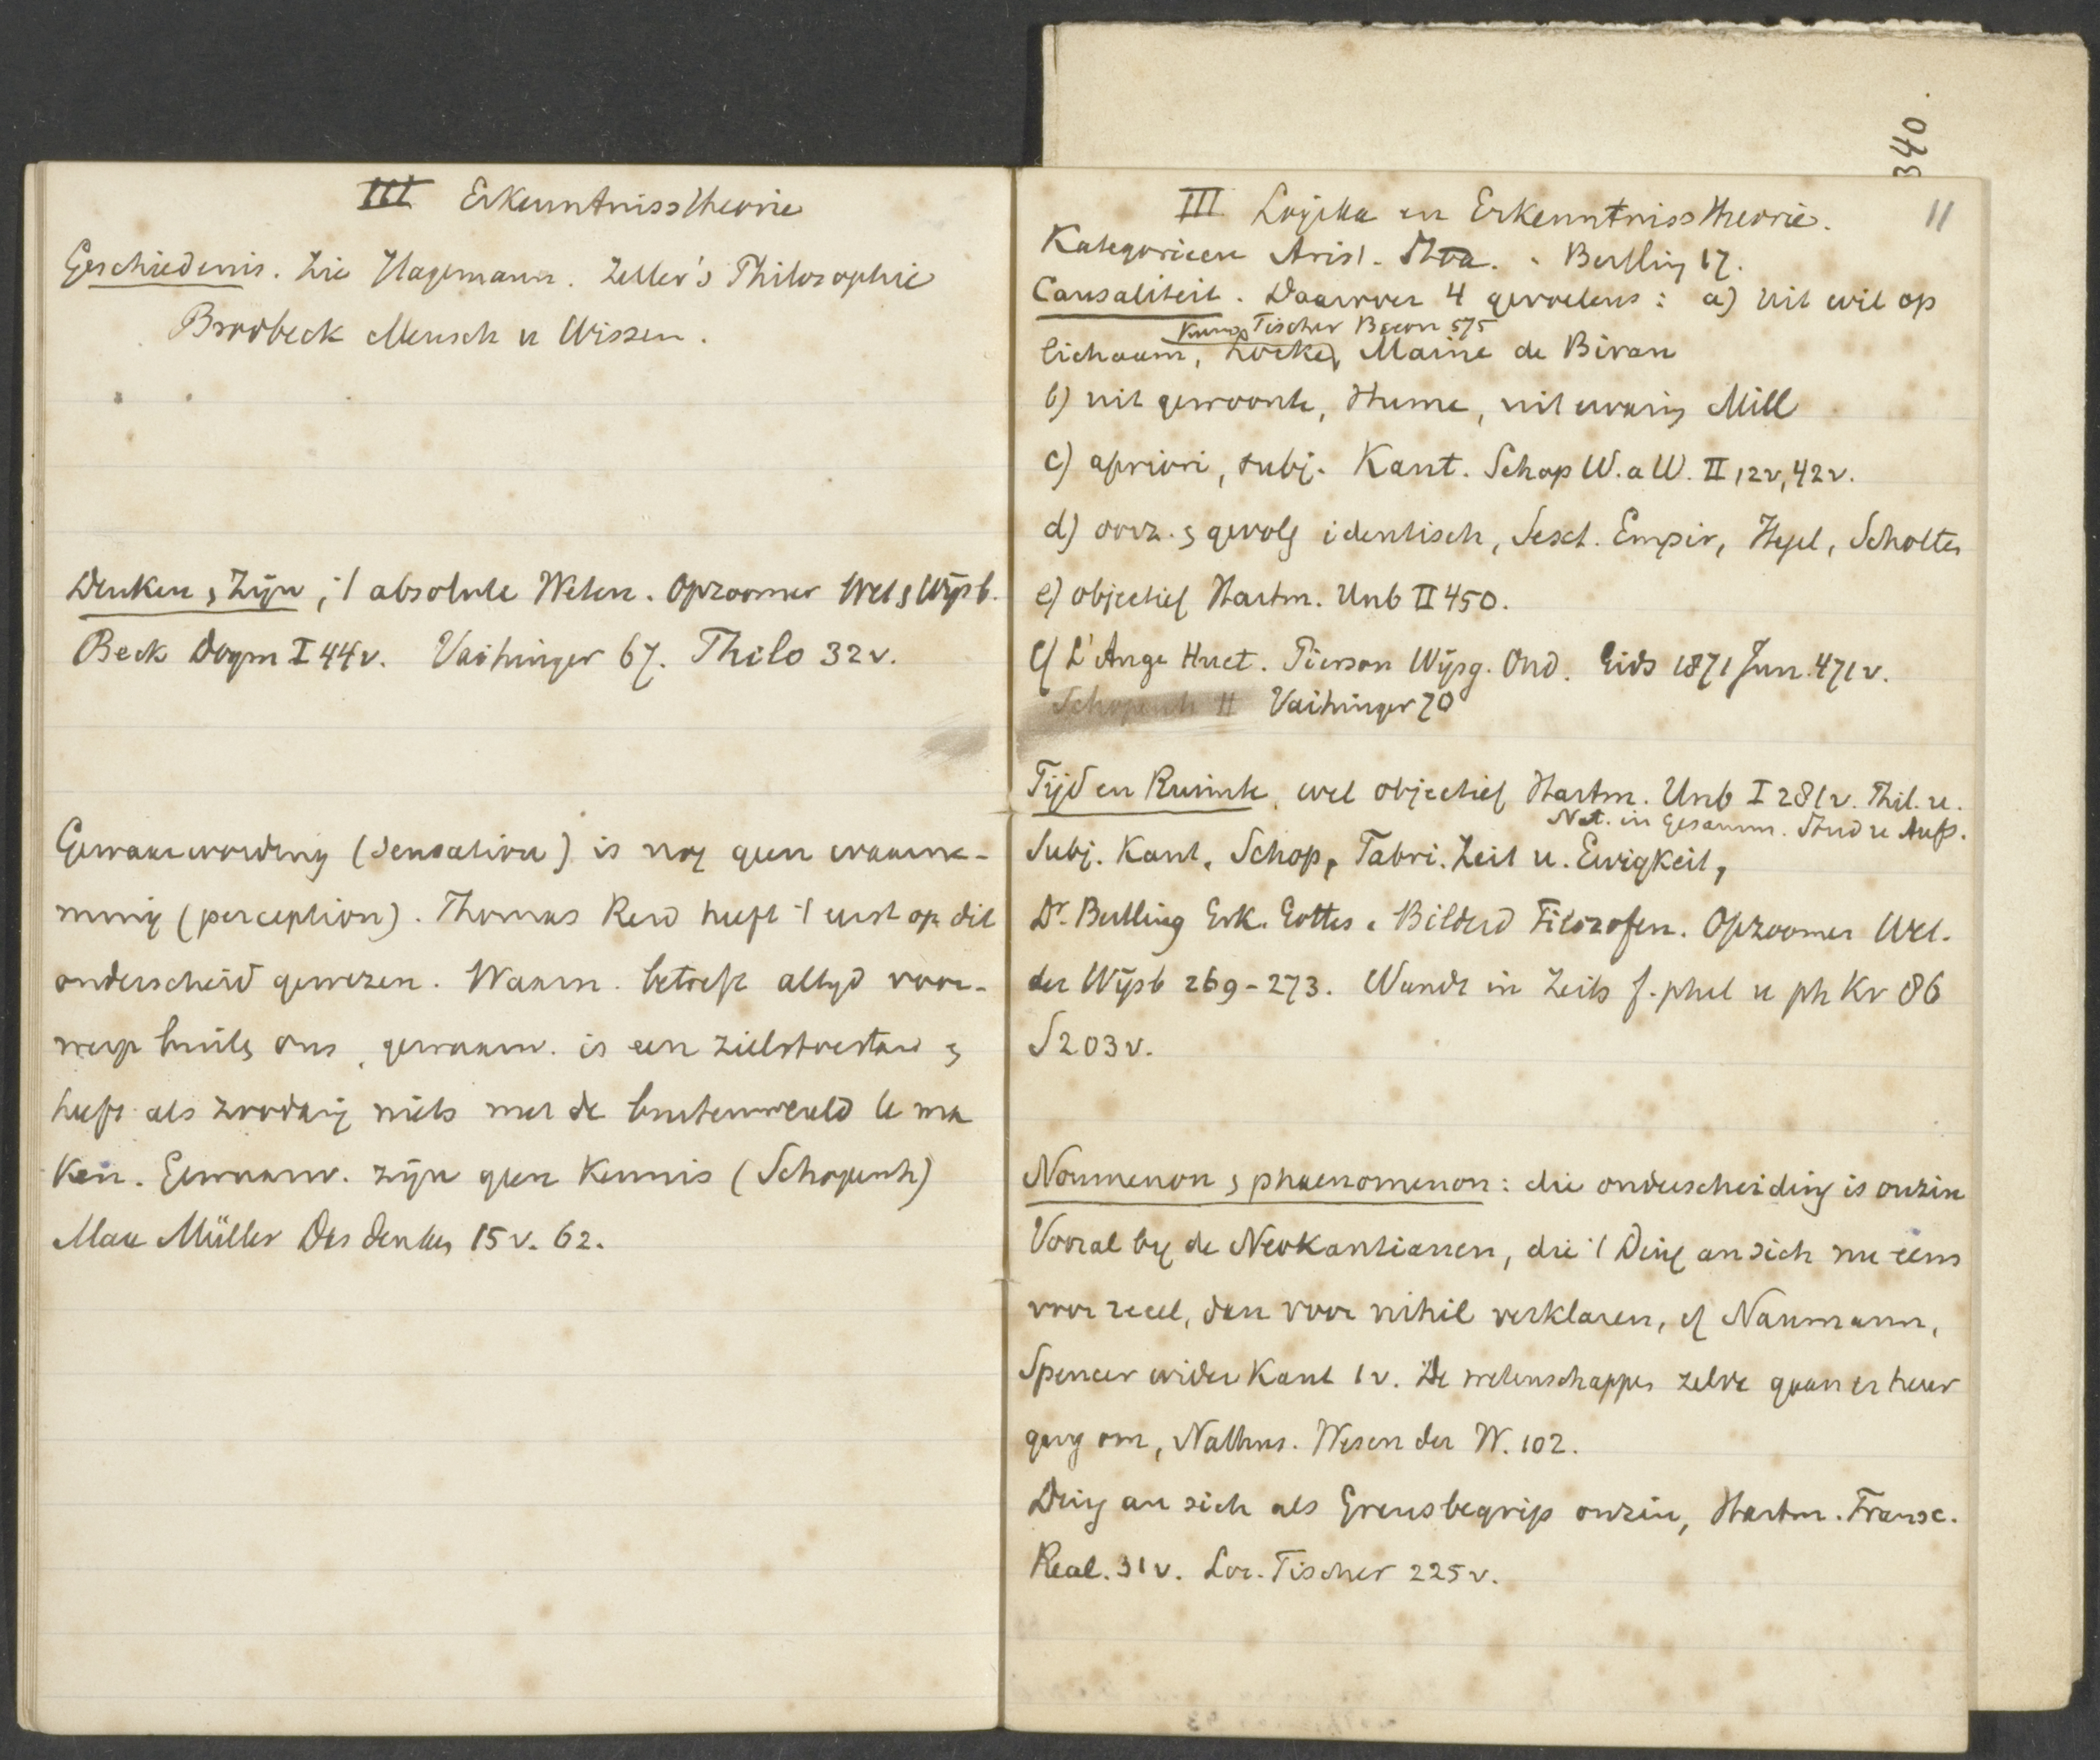 III Erkenntnisstheorie
Geschiedenis. Zie Hagemann. Zeller's Philosophie
Brodbeck Mensch u Wissen.
Denken & Zijn, 't absolute Weten. Opzoomer Wet & Wijsb.
Beck Dogm I 44v. Vaihinger 67. Thilo 32v.
Gewaarwording (sensation) is nog geen waarne-
ming (perception). Thomas Reid heeft 't eerst op dit
onderscheid gewezen. Waarn. betreft altyd voor-
werp buiten ons, gewaarw. is een zielstoestand &
heeft als zoodanig niets met de buitenwereld te ma
ken. Gewaarw. zijn geen Kennis (Schopenh)
Max Müller Das denken 15 v. 62.
340.
11
III Logika en Erkenntnisstheorie.
Kategorieen Arist. Stoa. Bertling 17.
Causaliteit. Daarover 4 gevoelens: a) uit wil op
Kuno Fischer Bacon 575
lichaam, Locke, Maine de Biran
b) uit gewoonte, Hume, uit ervaring Mill
c) apriori, subj. Kant. Schop W. a W. II 12v, 42v.
d) oorz. & gevolg identisch, Sext. Empir, Hegel, Scholten
e) objectief Hartm. Unb II 450.
cf L'Ange Huet. Pierson Wijsg. Ond. Gids 1871 Jun. 471v.
Schopenh II Vaihinger 70
Tijd en Ruimte, wel objectief Hartm. Unb I 281v. Phil. u.
Nat. in Gesamm. Stud u Aufs.
Subj. Kant, Schop, Fabri. Zeit u. Ewigkeit,
Dr. Bertling Erk. Gottes. Bilderd Filozofen. Opzoomer Wet.
der Wijsb 269-273. Wundt in Zeits f. phil u ph Kr 86
S 203v.
Noumenon & phaenomenon: die onderscheiding is onzin
Vooral by de Neokantianen, die 't Ding an sich nu eens
voor reeel, dan voor nihil verklaren, cf Naumann,
Spencer wider Kant 1v. De wetenschappen zelve gaan er heen
om, Nathus. Wesen der W. 102.
Ding an sich als Grensbegrip onzin, Hartm. Transc.
Real. 31v. Lor. Fischer 225v.